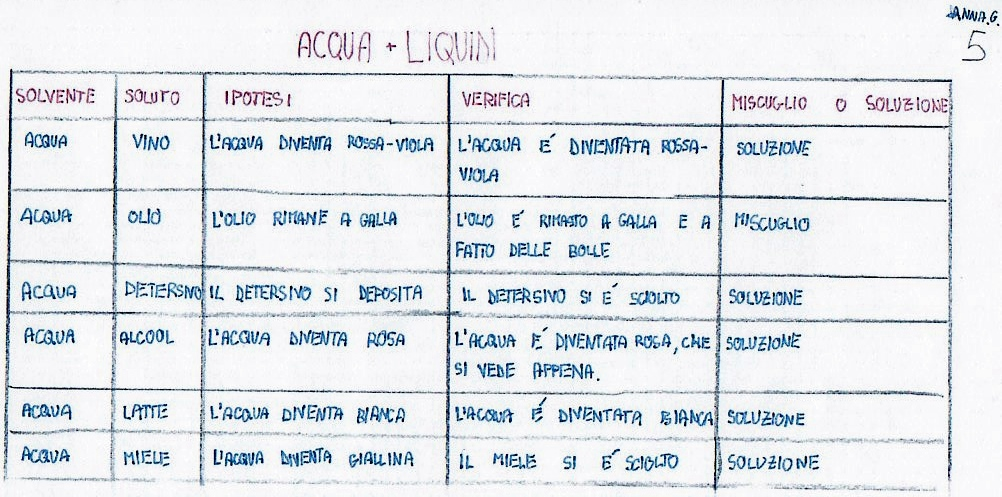 ANNA.G.
5
ACQUA + LIQUIDI
SOLVENTE SOLUTO IPOTESI VERIFICA MISCUGLIO O SOLUZIONE
ACQUA VINO L'ACQUA DIVENTA ROSSA-VIOLA L'ACQUA É DIVENTATA ROSSA-
VIOLA SOLUZIONE
ACQUA OLIO L'OLIO RIMANE A GALLA L'OLIO É RIMASTO A GALLA E A
FATTO DELLE BOLLE MISCUGLIO
ACQUA DETERSIVO IL DETERSIVO SI DEPOSITA IL DETERSIVO SI É SCIOLTO SOLUZIONE
ACQUA ALCOOL L'ACQUA DIVENTA ROSA L'ACQUA É DIVENTATA ROSA, CHE
SI VEDE APPENA. SOLUZIONE
ACQUA LATTE L'ACQUA DIVENTA BIANCA L'ACQUA É DIVENTATA BIANCA SOLUZIONE
ACQUA MIELE L'ACQUA DIVENTA GIALLINA IL MIELE SI É SCIOLTO SOLUZIONE